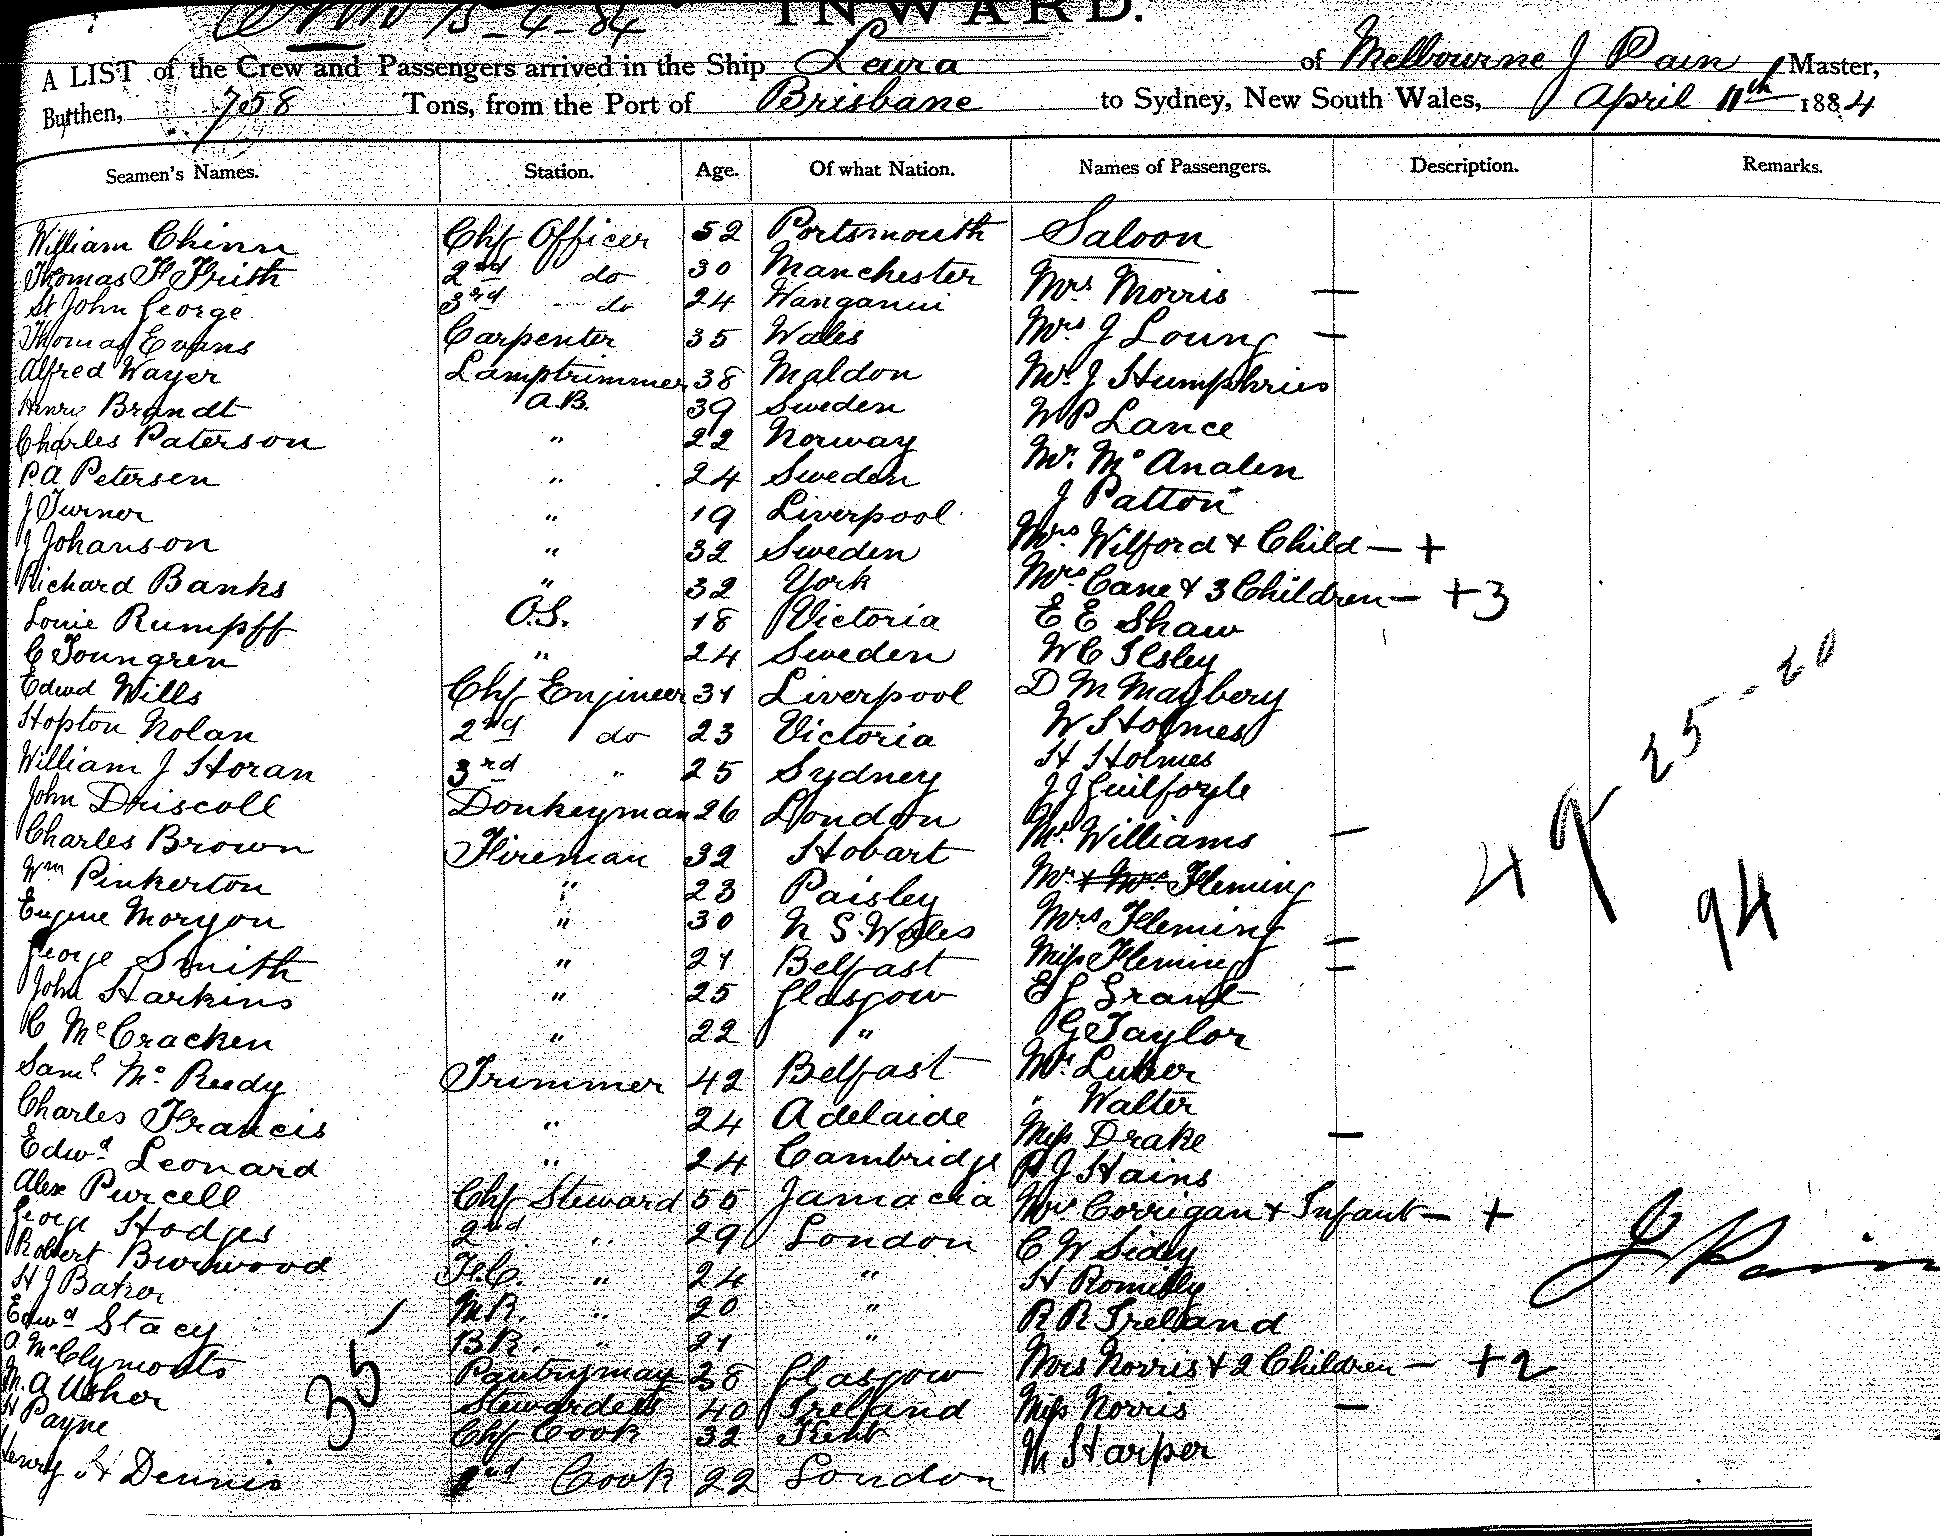 15-4-84
INWARD.
A LIST of the Crew and Passengers arrived in the Ship Leura of Melbourne J Pain Master,
Burthen, 758 Tons, from the Port of Brisbane to Sydney, New South Wales, April 11th 1884
Seamen's Names. Station. Age. Of what Nation. Names of Passengers. Description. Remarks.
William Chinn Chf Officer 52 Portsmouth Saloon
Thomas F Frith 2nd do 30 Manchester Mrs Morris —
St John George 3rd do 24 Wanganui Mrs J Loung —
Thomas Evans Carpenter 35 Wales Mr J Humphries
Alfred Wayer Lamptrimmer 38 Maldon W P Lance
Henry Brandt A.B. 39 Sweden Mr. Mc Analen
Charles Paterson " 22 Norway J Patton
P A Petersen " 24 Sweden Mrs Wilford & Child — +
J Turner " 19 Liverpool Mrs Cane & 3 Children — +3
J Johanson " 32 Sweden E E Shaw
Richard Banks " 32 York W C Ilsley
Louie Rumpff O.S. 18 Victoria D M Maybery
C Youngren " 24 Sweden W S Holmes
Edwd Wills Chf Engineer 31 Liverpool H Holmes
Hopton Nolan 2nd do 23 Victoria J J Guilfoyle
William J Horan 3rd " 25 Sydney Mrs Williams —
John Driscoll Donkeyman 26 London Mr & Mrs Fleming
Charles Brown Fireman 32 Hobart Mrs Fleming —
Wm Pinkerton " 23 Paisley Miss Fleming —
Eugene Moryon " 30 N S. Wales E J Grant
George Smith " 21 Belfast G Taylor
John Harkins " 25 Glasgow Mr Luber
C McCracken " 22 " " Walter
Saml Mc Reedy Trimmer 42 Belfast Miss Drake —
Charles Francis " 24 Adelaide P J Hains
Edwd Leonard " 24 Cambridge Mrs Corrigan & Infant — +
Alex Purcell Chf Steward 55 Jamacia C W Sidey
George Hodges 2nd " 29 London H Romilly
Robert Burwood F.C. " 24 " R R Ireland
H J Baker M.R. " 20 " Mrs Norris & 2 Children — +2
Edwd Stacy B.R. " 21 " Miss Norris —
A McClymonts Pantryman 38 Glasgow M Harper
M. A Usher Stewardess 40 Ireland
H Payne Chf Cook 32 Kent
Henry H Dennis 2nd Cook 22 London
35
49
25 - 20
94
J Pain